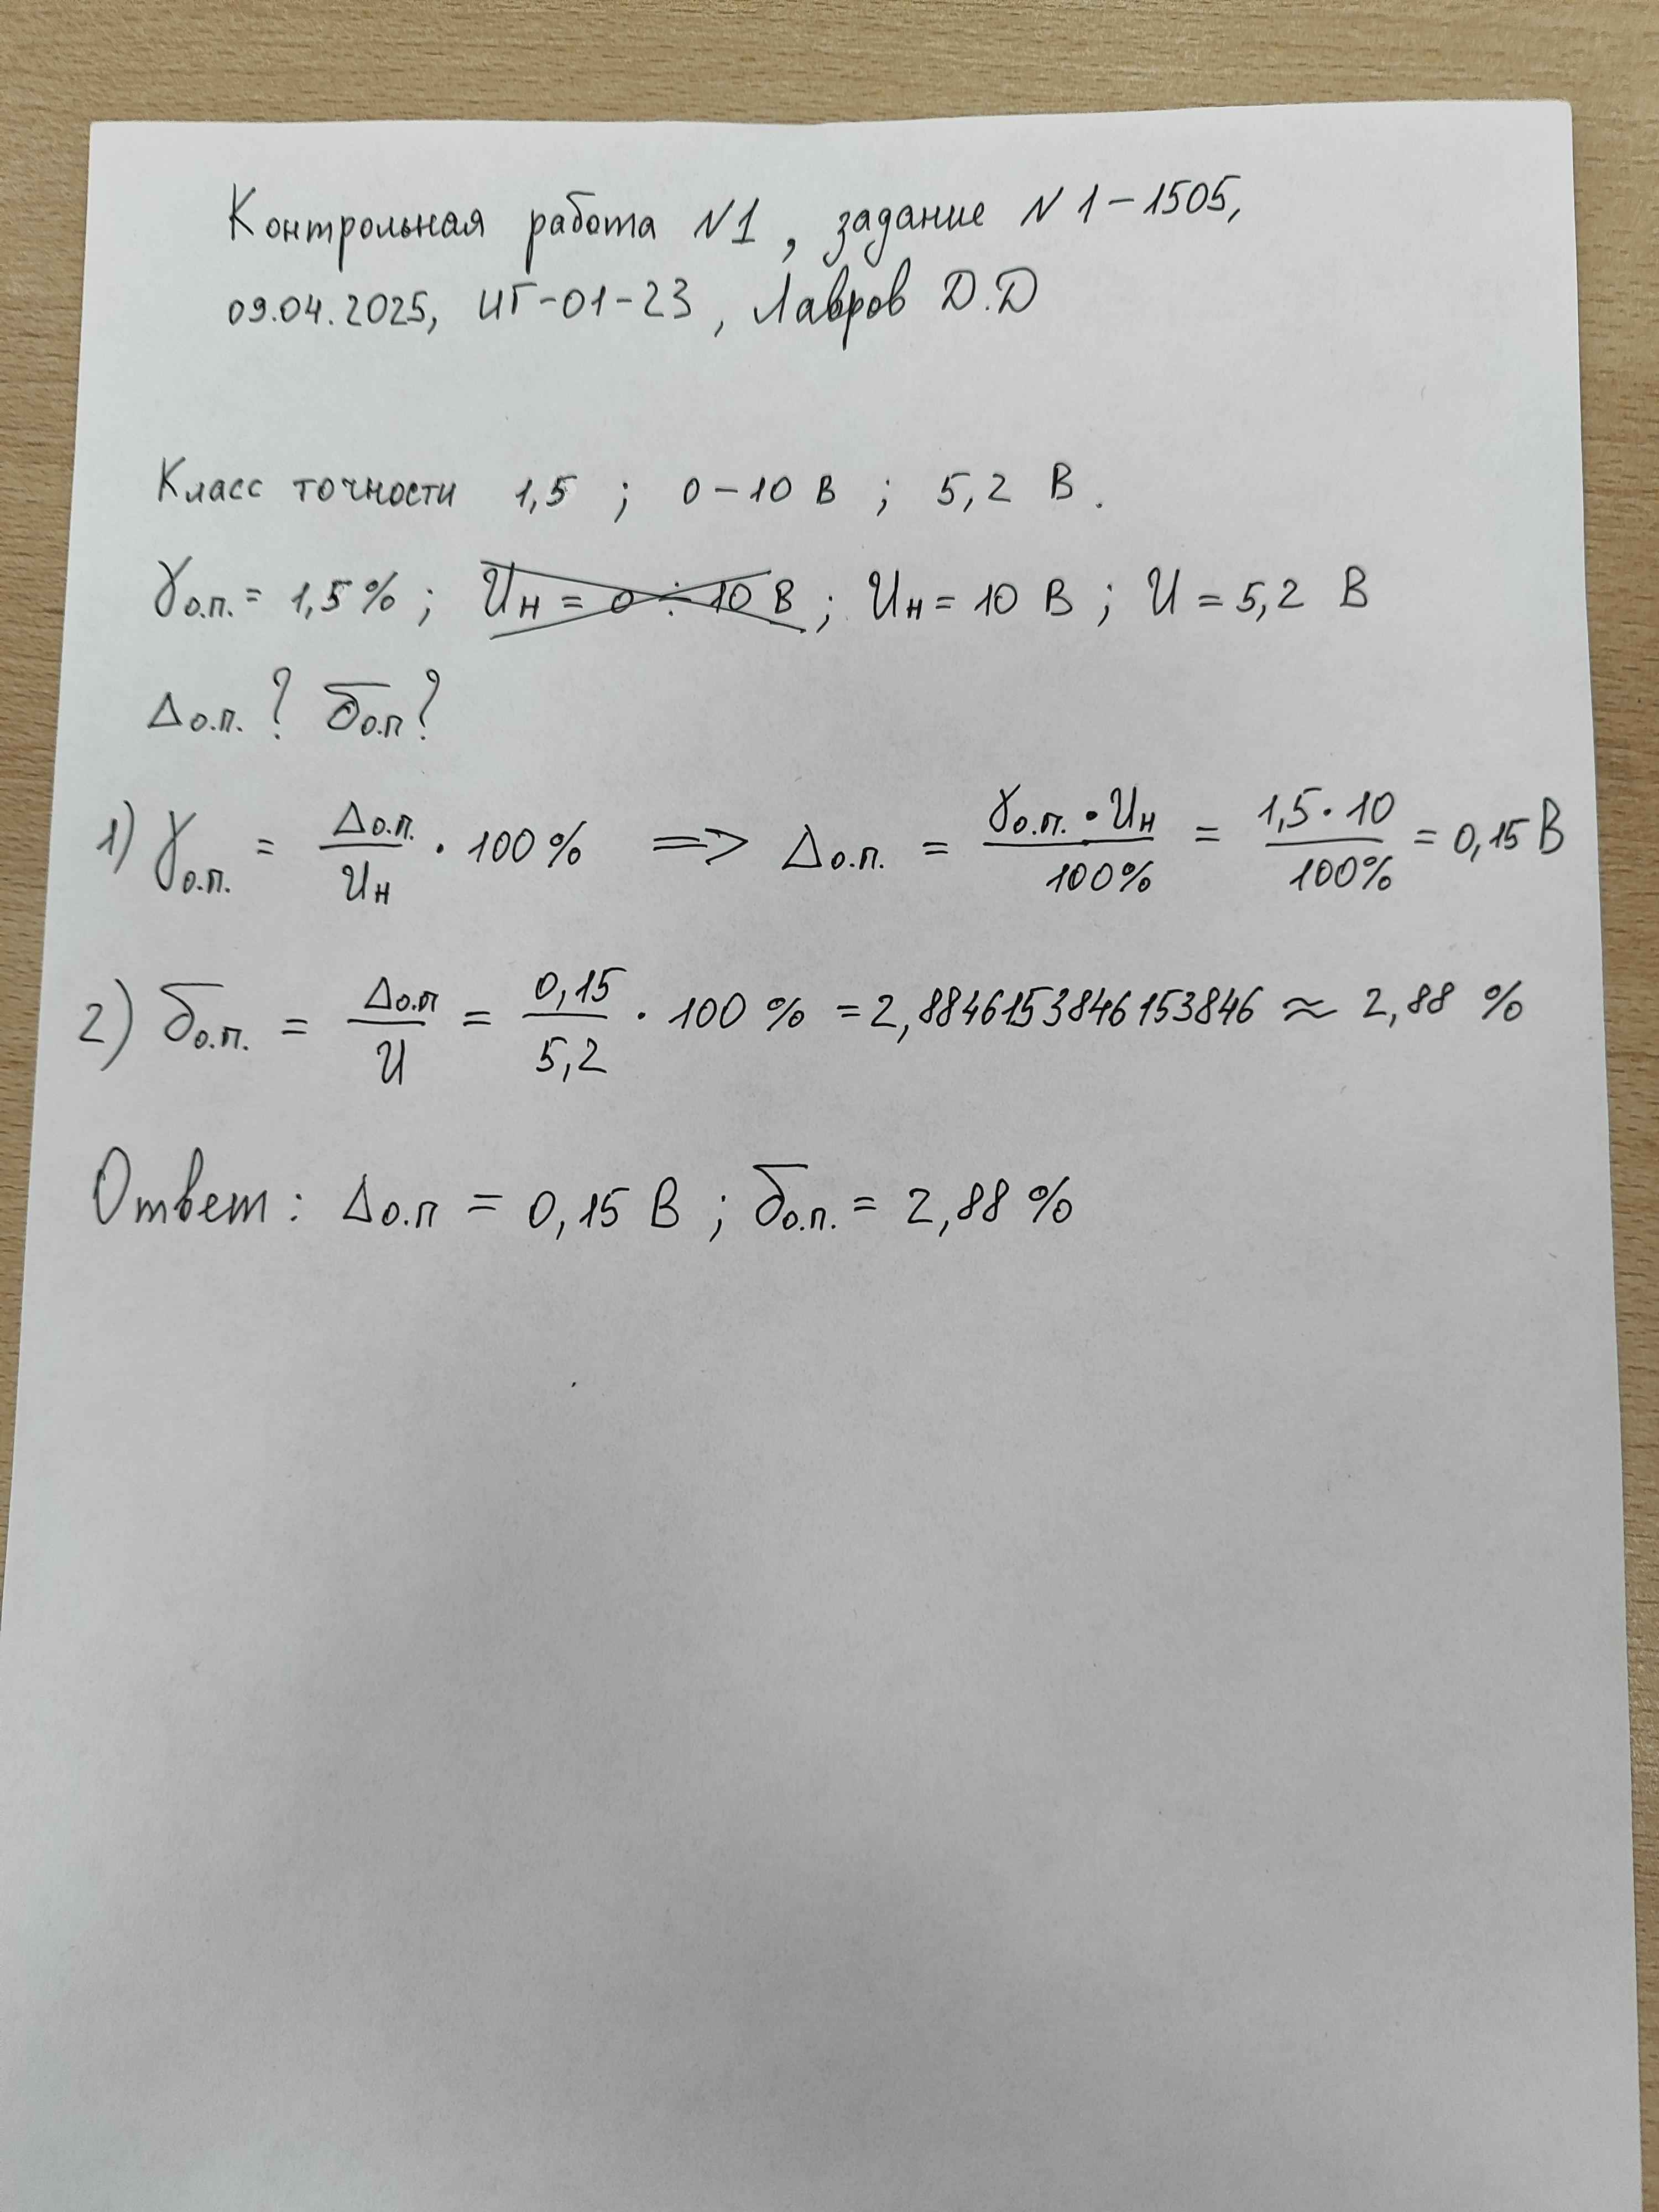 Контрольная работа N1, задание N 1-1505,
09.04.2025, ИГ-01-23, Лавров Д.Д
Класс точности 1,5 ; 0-10 В ; 5,2 В.
γо.п. = 1,5% ; Uн = 0 ÷ 10 В ; Uн = 10 В ; U = 5,2 В
Δо.п. ? δо.п ?
1) γо.п. = Δо.п. / Uн · 100% => Δо.п. = γо.п. · Uн / 100% = 1,5 · 10 / 100% = 0,15 В
2) δо.п. = Δо.п / U = 0,15 / 5,2 · 100 % = 2,8846153846153846 ≈ 2,88 %
Ответ: Δо.п = 0,15 В ; δо.п. = 2,88 %